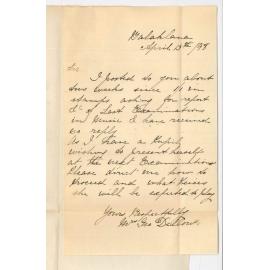 April 13th /98
Sir
I posted to you about
two weeks since 11 in
stamps asking for report
&c of Last Examinations
in Music & have received
no reply
As I have a Pupil
wishing to present herself
at the next Examination
Please direct me how to
proceed and what Pieces
she will be expected to play
Yours Respectfully
Mrs Geo